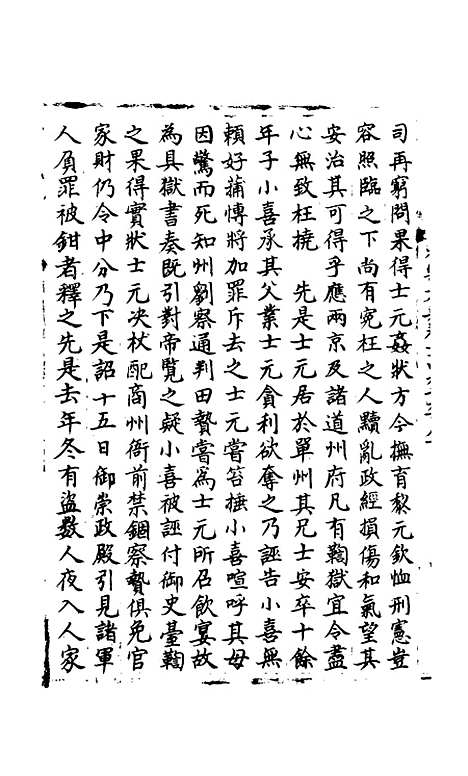 司再窮問果得士元姦狀方今撫育黎元欽恤刑憲豈
容照臨之下尚有寃枉之人黷亂政經損傷和氣望其
安治其可得乎應兩京及諸道州府凡有鞫獄宜令盡
心無致枉撓　先是士元居於單州其兄士安卒十餘
年子小喜承其父業士元貪利欲奪之乃誣告小喜無
賴好蒱愽將加罪斥去之士元嘗笞捶小喜喧呼其母
因驚而死知州劉察通判田贄嘗爲士元所召飲宴故
為具獄書奏既引對帝覽之疑小喜被誣付御史臺鞫
之果得實狀士元决杖配商州衙前禁錮察贄俱免官
家財仍令中分乃下是詔十五日御崇政殿引見諸軍
人負罪被鉗者釋之先是去年冬有盜數人夜入人家